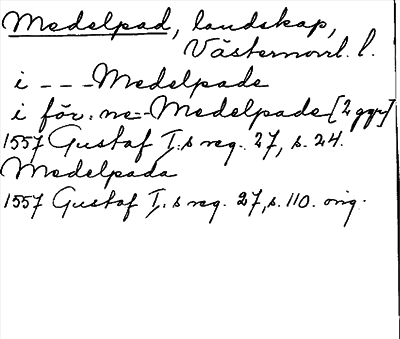 Medelpad, landskap,
Västernorrl. l.
i - - - Medelpade
i för: ne - Medelpade [2 ggr]
1557 Gustaf I:s reg. 27, s. 24.
Medelpada
1557 Gustaf I:s reg. 27, s. 110. orig.